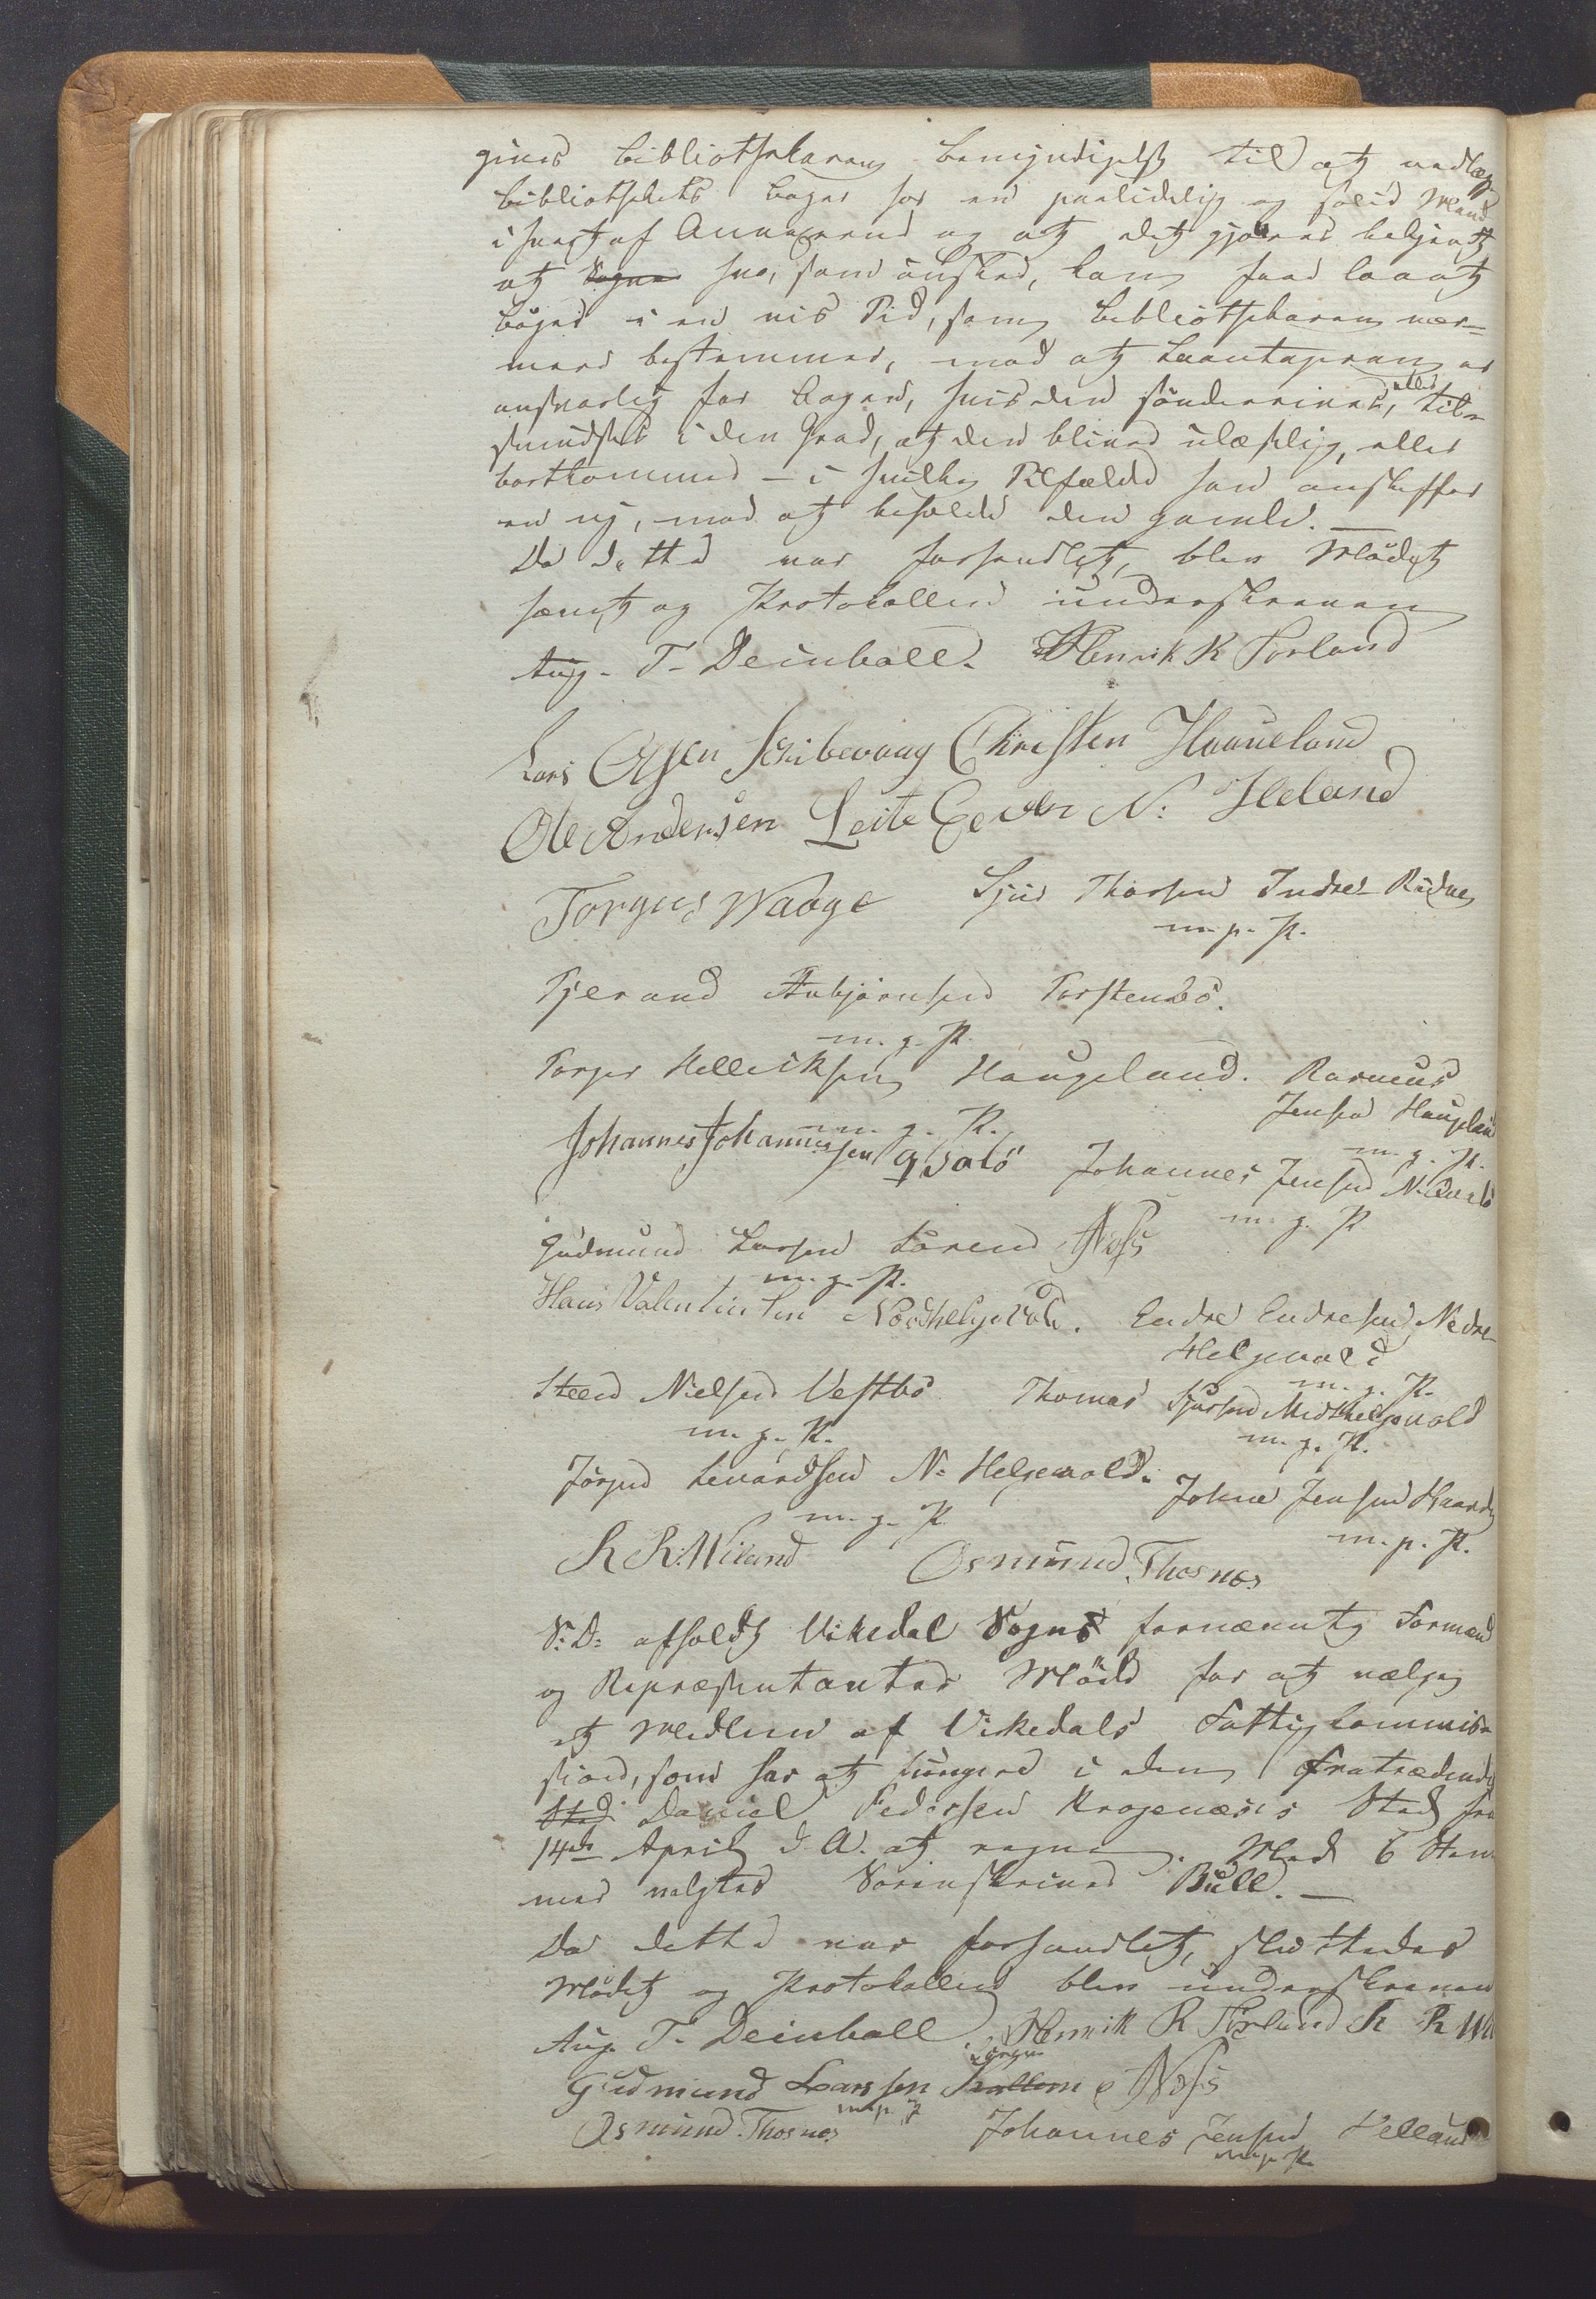 gives Bibliothekaren bemyndigelse til at nedlægge
bibliothekets bøger hos en paalidelig og solid Mand
i hvert af Annexerne og at det gjøres bekjendt
at Sogne hver, som ønsker, kan faae laant
bøger i en vis Tid, som Bibliothekaren nær-
mere bestemmer, mod at Laantageren er
ansvarlig for bogen, hvis den sönderrives, eller til-
smudses i den Grad, at den bliver ulæselig, eller
bortkommer – i hvilket Tilfælde han anskaffer
en ny, mod at beholde den gamle. —
Da dette var forhandlet, blev Mödet
hævet og Protokollen underskreven
Aug. T. Deinboll. Henrik K Torland
Lars Olsen Schibevaag Christen Haaueland
Ole Andersen Leite N: Heland
Torgius Waage Sjur Thorsen Indre
m. p. P.
Tjerand Asbjørnsen Torstenbö.
m. p. P.
Torger Helliksen Haugeland. Rasmus
Jensen Haugeland
m. p. P.
Johannes Johannessen m. p. P.
Johannes Jensen
m. p. P.
Gudmund Larsen Løvend Næss
m. p. P.
Hans Valentinsen Nordhelgevold. Endre Endresen Nedre
Helgevold
m. p. P.
Steen Nielsen Vestbö Thomas Sjursen Midthelgevold
m. p. P. m. p. P.
Jörgen Levardsen N. Helgevold. Johne Jensen
m. p. P. m. p. P.
K R. Wiland Osmund Thosnæs
S: D: afholdt Vikedal Sogns fornævnte Formænd
og Repræsentanter Möde for at vælge
et Medlem af Vikedals Fattigkommis-
sion, som har at fungere i den fratrædende
Sted Daniel Pedersen Krogenæses Sted fra
14de April d. A. at regne. Med 6 Stem
mer valgtes Sorenskriver Bull. —
Da dette var forhandlet, sluttedes
Mödet og Protokollen blev underskreven
Aug. T. Deinboll Henrik K Torland K R Wil
Gudmund Larssen Næss
m. p. P.
Osmund Thosnæs Johannes Jensen Helland
m. p. P.